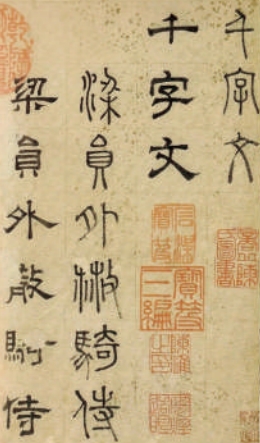 千字文
千字文
梁員外散騎侍
梁員外散騎侍
寶笈三編